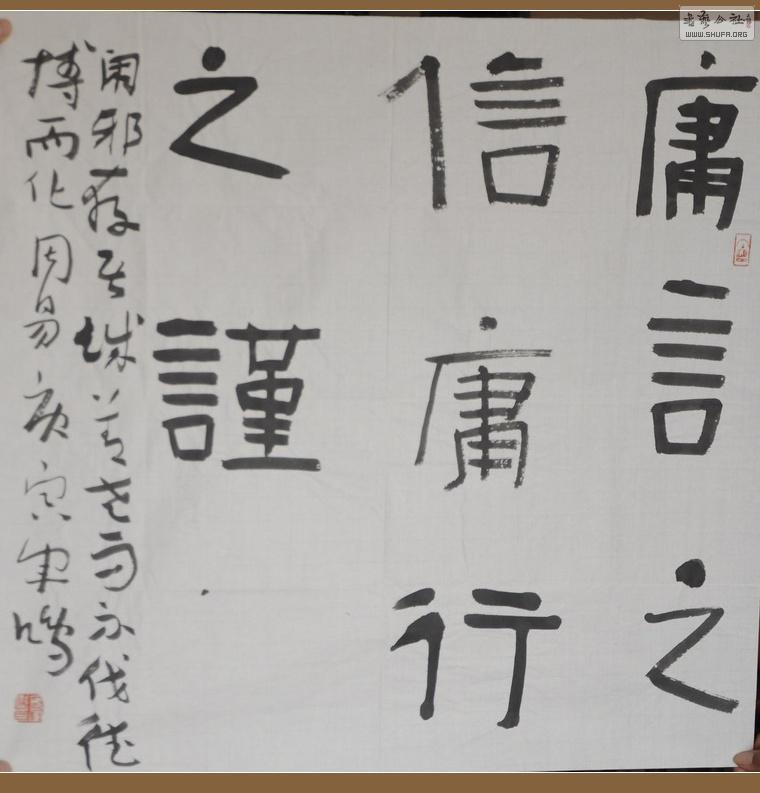 庸言之
信庸行
之謹
閑邪存其誠善世而不伐德
博而化周易庚寅軍鵬
書藝公社
WWW.SHUFA.ORG